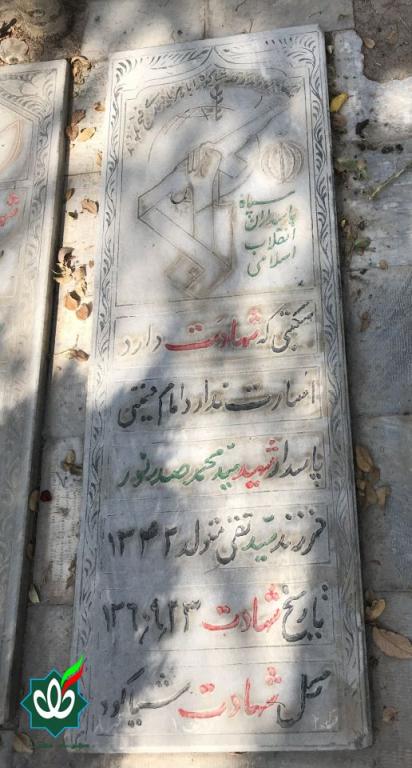 سپاه
پاسداران
انقلاب
اسلامی
که شهادت دارد
اسارت ندارد امام خمینی
پاسدار شهید سید محمد صدرنور
فرزند سید تقی متولد ۱۳۴۲
تاریخ شهادت ۱۳۶۰٫۹٫۲۳
محل شهادت شیاکوه